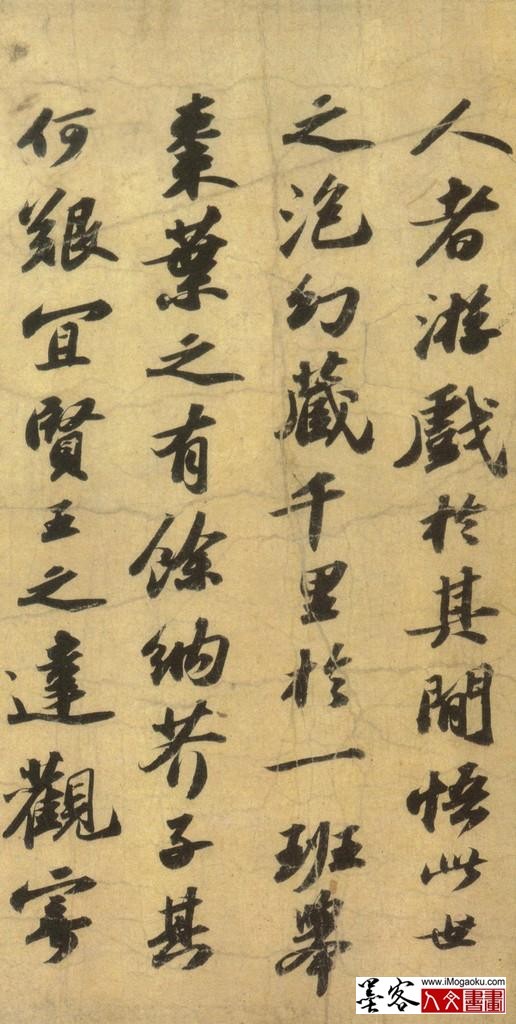 人者游戲於其間悟此世
之泡幻藏千里於一班舉
棗葉之有餘納芥子其
何艱宜賢王之達觀寄
墨客
www.iMogaoku.com
人文書畫